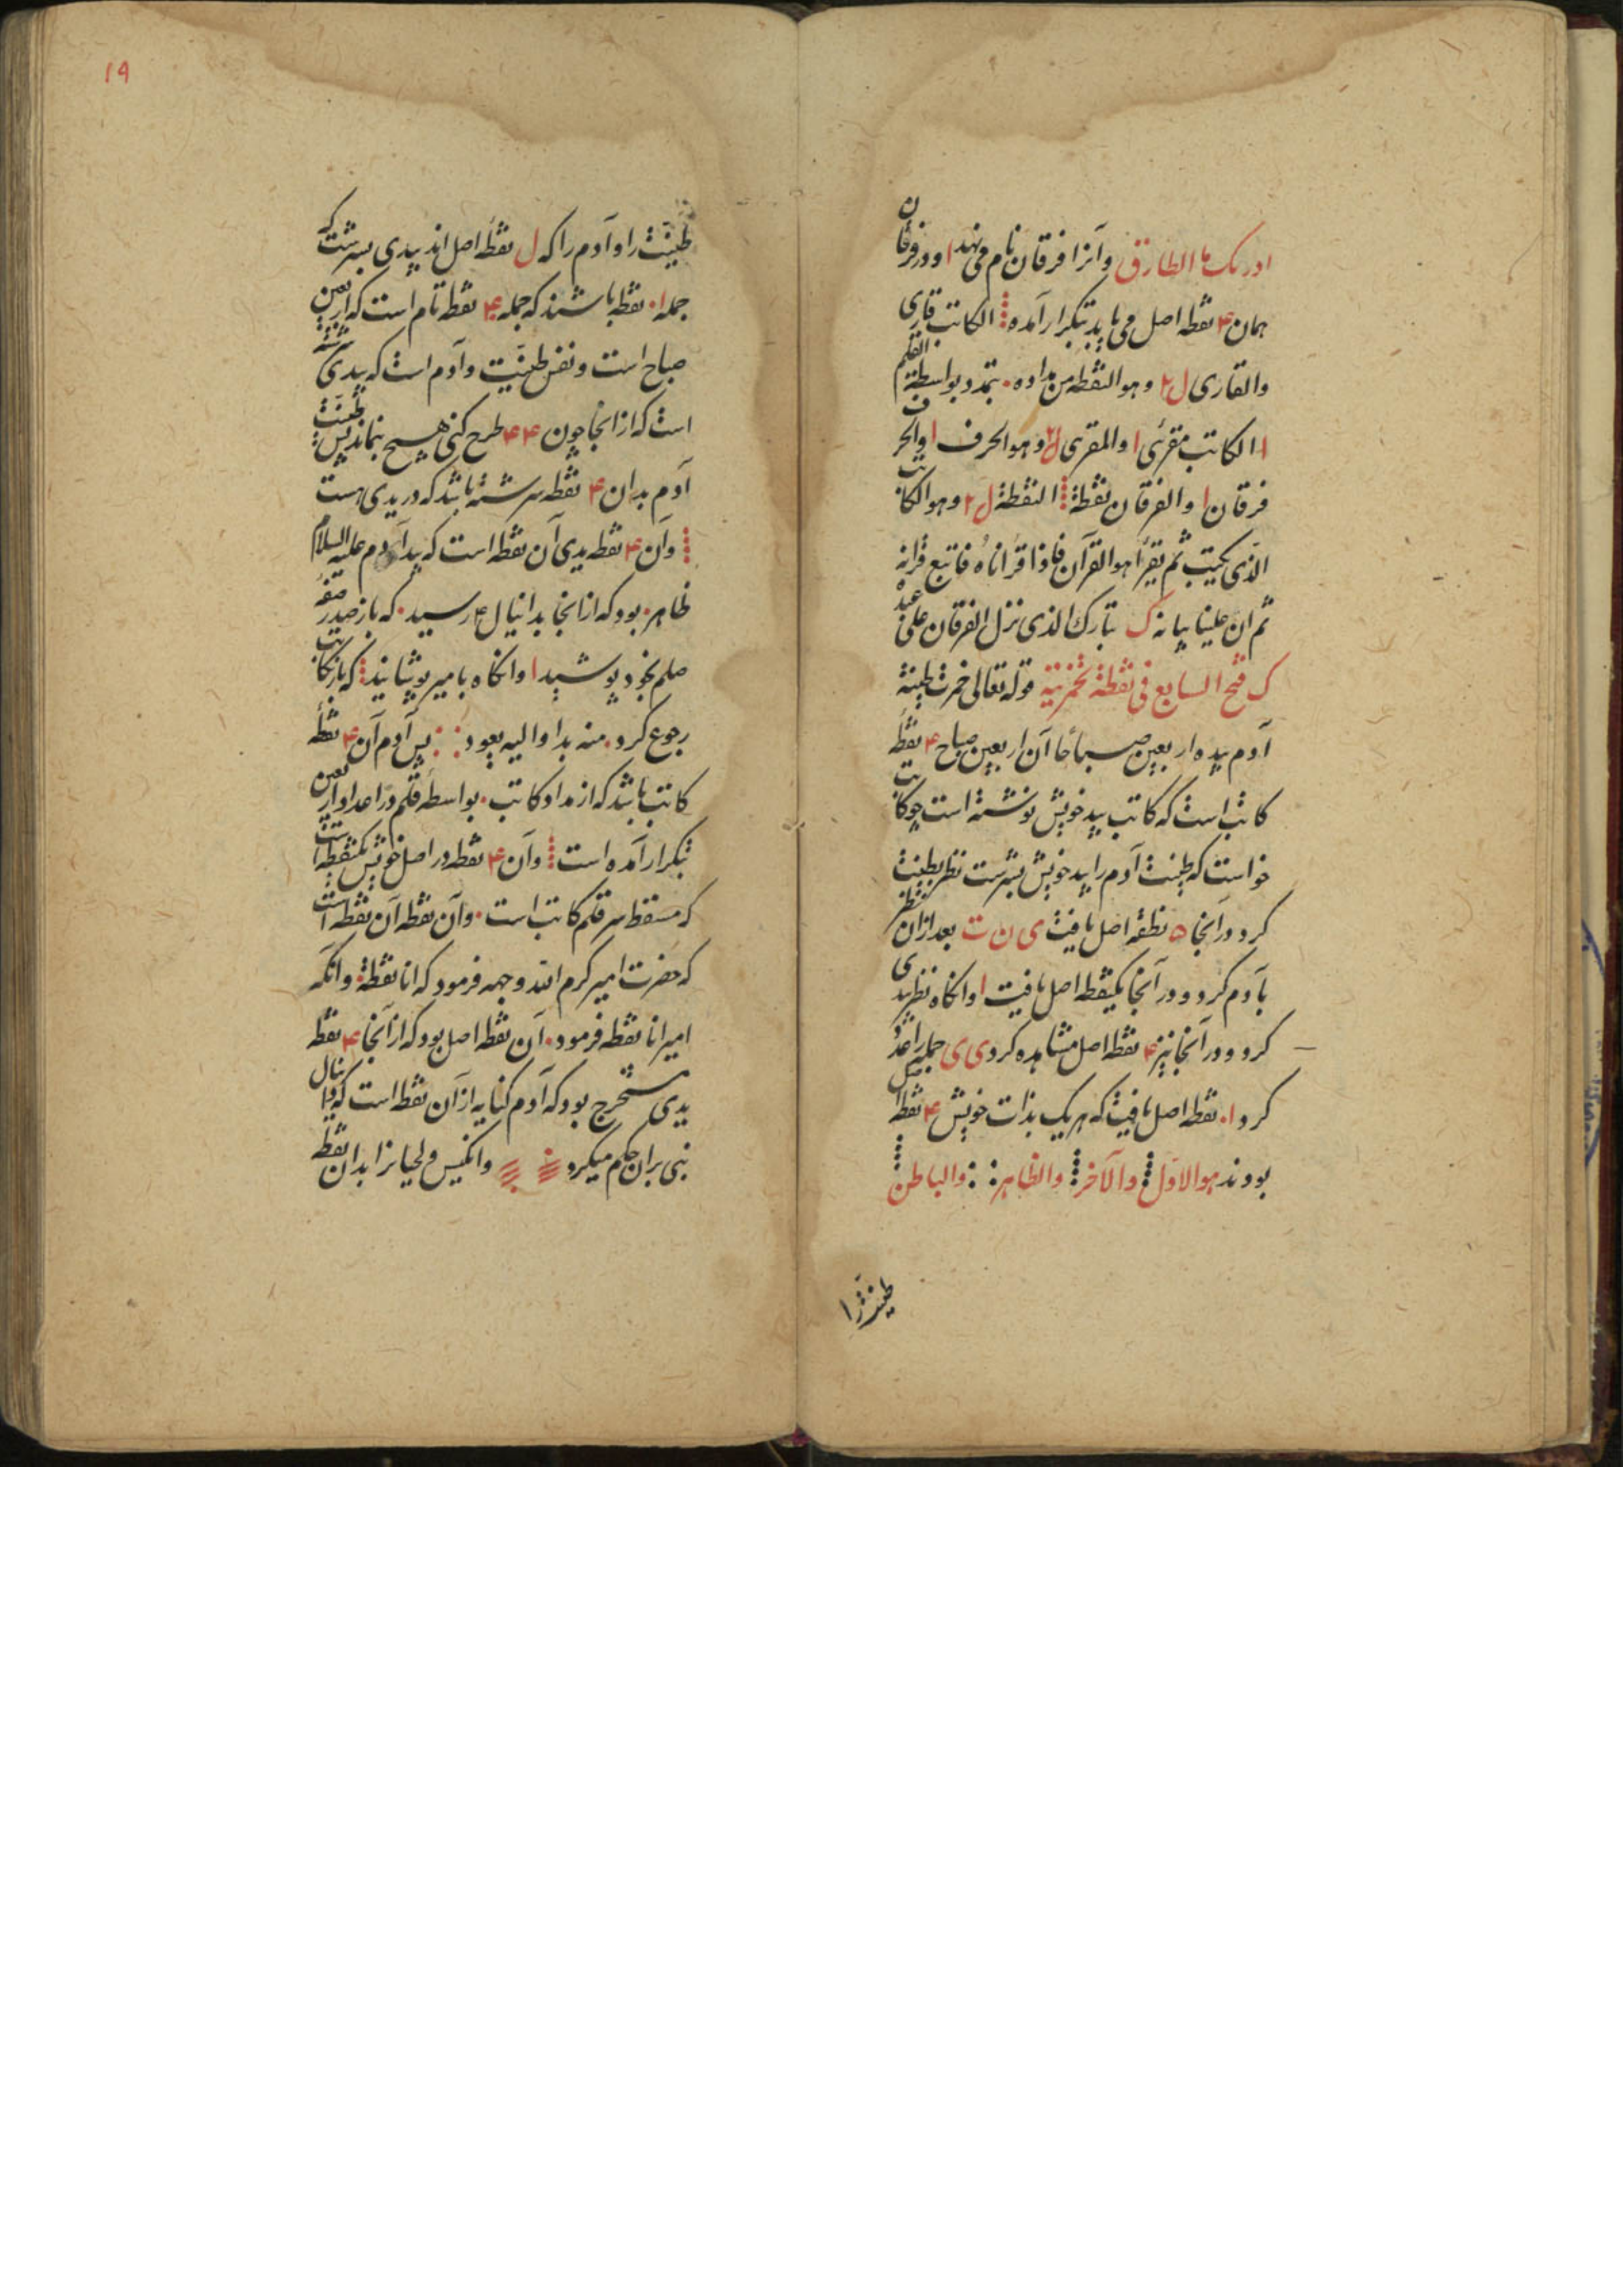 ادریک ما الطارق وآنرا فرقان نام می نهد ا ودر فرقان
همان ۴ نقطه اصل می باید بتکرار آمده الکاتب قاری
والقاری ل۲ وهو النقطه من مداده تمدد بواسطة القلم
ا الکاتب مقرئ ا والمقری ل۲ وهو الحرف ا والحرف
فرقان ا والفرقان نقطة النقطة ل۲ وهو الکاتب
الذی یکتب ثم یقرأ هو القرآن فاذا قرأناه فاتبع قرآنه
ثم ان علینا بیانه ک تبارک الذی نزل الفرقان علی عبده
ک فتح السابع فی نقطة تخمرتیه قوله تعالی خمرت طینة
آدم بیده اربعین صباحا آن اربعین صباح ۴ نقطه
کاتب است که کاتب بید خویش نوشته است چو کاتب
خواست که طینت آدم را بید خویش بسرشت نظر بطینت
کرد ودر آنجا ۵ نطقه اصل یافت ی ن ت بعد ازان نظر
بآدم کرد ودر آنجا یکنقطه اصل یافت ا وانکاه نظر بیدی
کرد ودر آنجا نیز ۴ نقطه اصل مشاهده کرد ی ی جمله را عد
کرد ۱۰ نقطه اصل یافت که هریک بذات خویش ۴ نقطه
بودند هو الاول والآخر والظاهر والباطن
طینترا
۱۹
طینت را وآدم را که ل نقطه اصل اند بیدی بسرشت که
جمله ۱۰ نقطه باشند که جمله ۴۰ نقطه تام است که اربعین
صباح است ونفس طینت وآدم است که بیدی سرشته
است که از انجا چون ۴۴ طرح کنی هیچ نماند پس طینت
آدم بدان ۴ نقطه سرشته باشد که در یدی هست
وآن ۴ نقطه یدی آن نقطه است که بید آدم علیه السلام
ظاهر بود که از انجا بدانیال رسید که باز
صلم بخود پوشید ا وانکاه بامیر پوشانید که باز بکاتب
رجوع کرد منه بدا والیه یعود پس آدم آن ۴ نقطه
کاتب باشد که از مداد کاتب بواسطه قلم در اعداد اربعین
بتکرار آمده است وآن ۴ نقطه در اصل خویش یکنقطه است
که مسقط سر قلم کاتب است وآن نقطه آن نقطه است
که حضرت امیر کرم الله وجهه فرمود که انا نقطة وانکه
امیر انا نقطه فرمود آن نقطه اصل بود که از آنجا ۴ نقطه
یدی مستخرج بود که آدم کنایه از آن نقطه است که دانیال
نبی بران حکم میکرد وانکیس ولحیانرا بدان نقطه